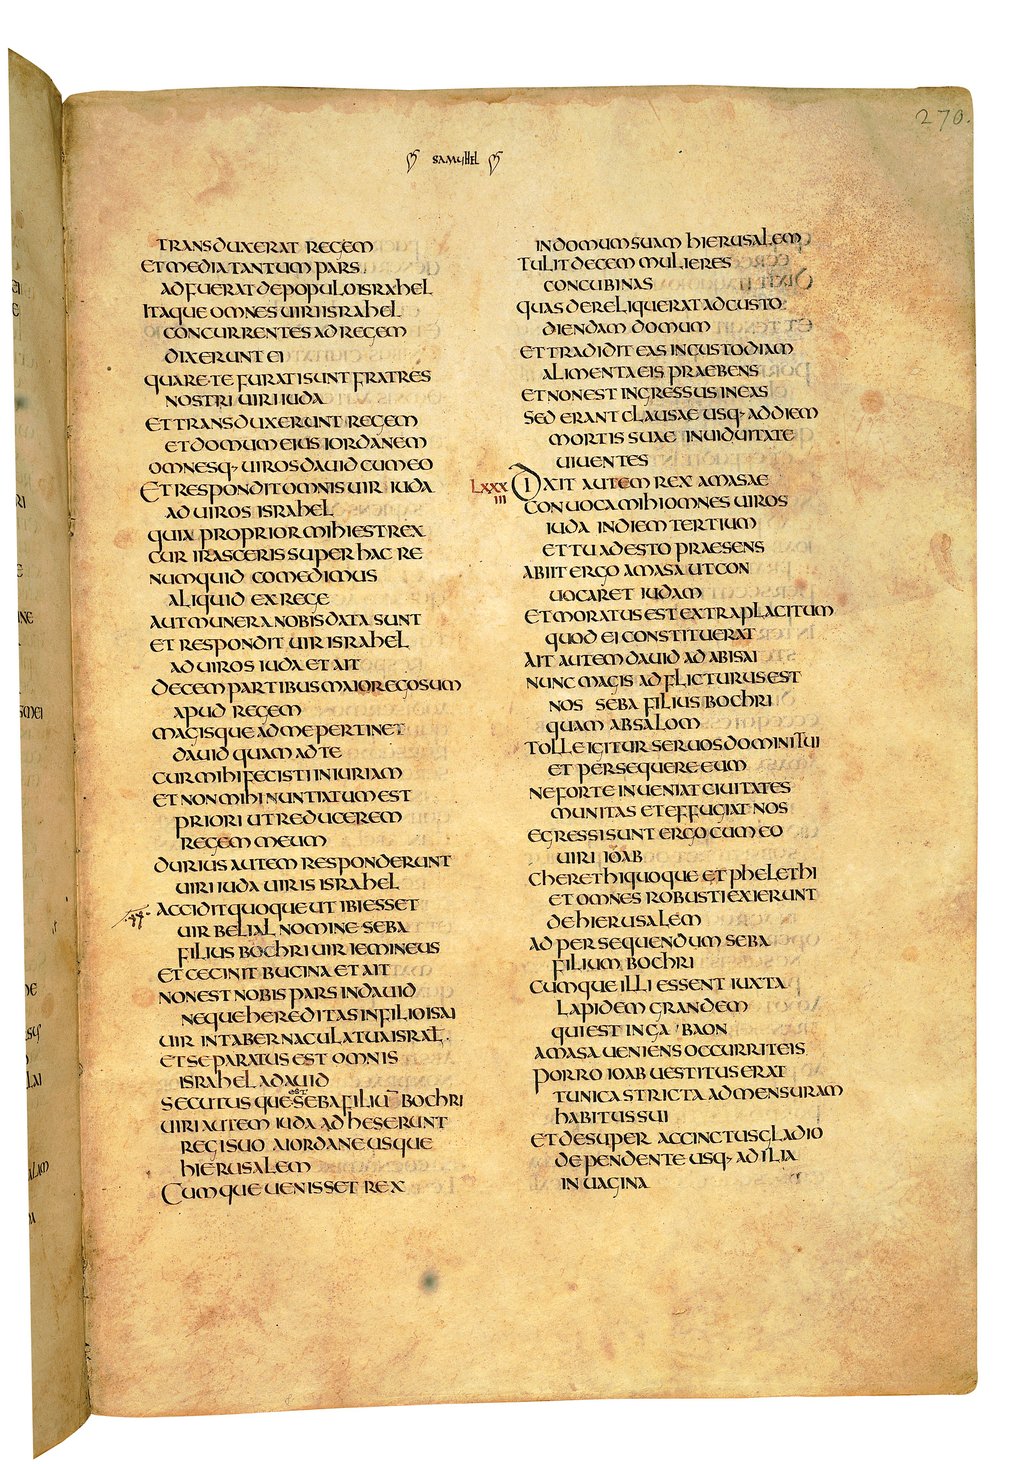 270.
SAMUHEL
TRANSDUXERAT REGEM
ET MEDIA TANTUM PARS
ADFUERAT DE POPULO ISRAHEL
ITAQUE OMNES UIRI ISRAHEL
CONCURRENTES AD REGEM
DIXERUNT EI
QUARE TE FURATI SUNT FRATRES
NOSTRI UIRI IUDA
ET TRANSDUXERUNT REGEM
ET DOMUM EIUS IORDANEM
OMNESQ· UIROS DAUID CUM EO
ET RESPONDIT OMNIS UIR IUDA
AD UIROS ISRAHEL
QUIA PROPRIOR MIHI EST REX
CUR IRASCERIS SUPER HAC RE
NUMQUID COMEDIMUS
ALIQUID EX REGE
AUT MUNERA NOBIS DATA SUNT
ET RESPONDIT UIR ISRAHEL
AD UIROS IUDA ET AIT
DECEM PARTIBUS MAIOR EGO SUM
APUD REGEM
MAGISQUE AD ME PERTINET
DAUID QUAM AD TE
CUR MIHI FECISTI INIURIAM
ET NON MIHI NUNTIATUM EST
PRIORI UT REDUCEREM
REGEM MEUM
DURIUS AUTEM RESPONDERUNT
UIRI IUDA UIRIS ISRAHEL
ACCIDIT QUOQUE UT IBI ESSET
UIR BELIAL NOMINE SEBA
FILIUS BOCHRI UIR IEMINEUS
ET CECINIT BUCINA ET AIT
NON EST NOBIS PARS IN DAUID
NEQUE HEREDITAS IN FILIO ISAI
UIR IN TABERNACULA TUA ISRAL.
ET SEPARATUS EST OMNIS
ISRAHEL A DAUID
SECUTUSQUE EST SEBA FILIU̅ BOCHRI
UIRI AUTEM IUDA ADHESERUNT
REGI SUO A IORDANE USQUE
HIERUSALEM
CUMQUE UENISSET REX
IN DOMUM SUAM HIERUSALEM
TULIT DECEM MULIERES
CONCUBINAS
QUAS DERELIQUERAT AD CUSTO
DIENDAM DOMUM
ET TRADIDIT EAS IN CUSTODIAM
ALIMENTA EIS PRAEBENS
ET NON EST INGRESSUS IN EAS
SED ERANT CLAUSAE USQ· AD DIEM
MORTIS SUAE IN UIDUITATE
UIUENTES
LXXXIII DIXIT AUTEM REX AMASAE
CONUOCA MIHI OMNES UIROS
IUDA IN DIEM TERTIUM
ET TU ADESTO PRAESENS
ABIIT ERGO AMASA UT CON
UOCARET IUDAM
ET MORATUS EST EXTRA PLACITUM
QUOD EI CONSTITUERAT
AIT AUTEM DAUID AD ABISAI
NUNC MAGIS ADFLICTURUS EST
NOS SEBA FILIUS BOCHRI
QUAM ABSALOM
TOLLE IGITUR SERUOS DOMINI TUI
ET PERSEQUERE EUM
NE FORTE INUENIAT CIUITATES
MUNITAS ET EFFUGIAT NOS
EGRESSI SUNT ERGO CUM EO
UIRI IOAB
CHERETHI QUOQUE ET PHELETHI
ET OMNES ROBUSTI EXIERUNT
DE HIERUSALEM
AD PERSEQUENDUM SEBA
FILIUM BOCHRI
CUMQUE ILLI ESSENT IUXTA
LAPIDEM GRANDEM
QUI EST IN GABAON
AMASA UENIENS OCCURRIT EIS
PORRO IOAB UESTITUS ERAT
TUNICA STRICTA AD MENSURAM
HABITUS SUI
ET DESUPER ACCINCTUS GLADIO
DEPENDENTE USQ· AD ILIA
IN UAGINA